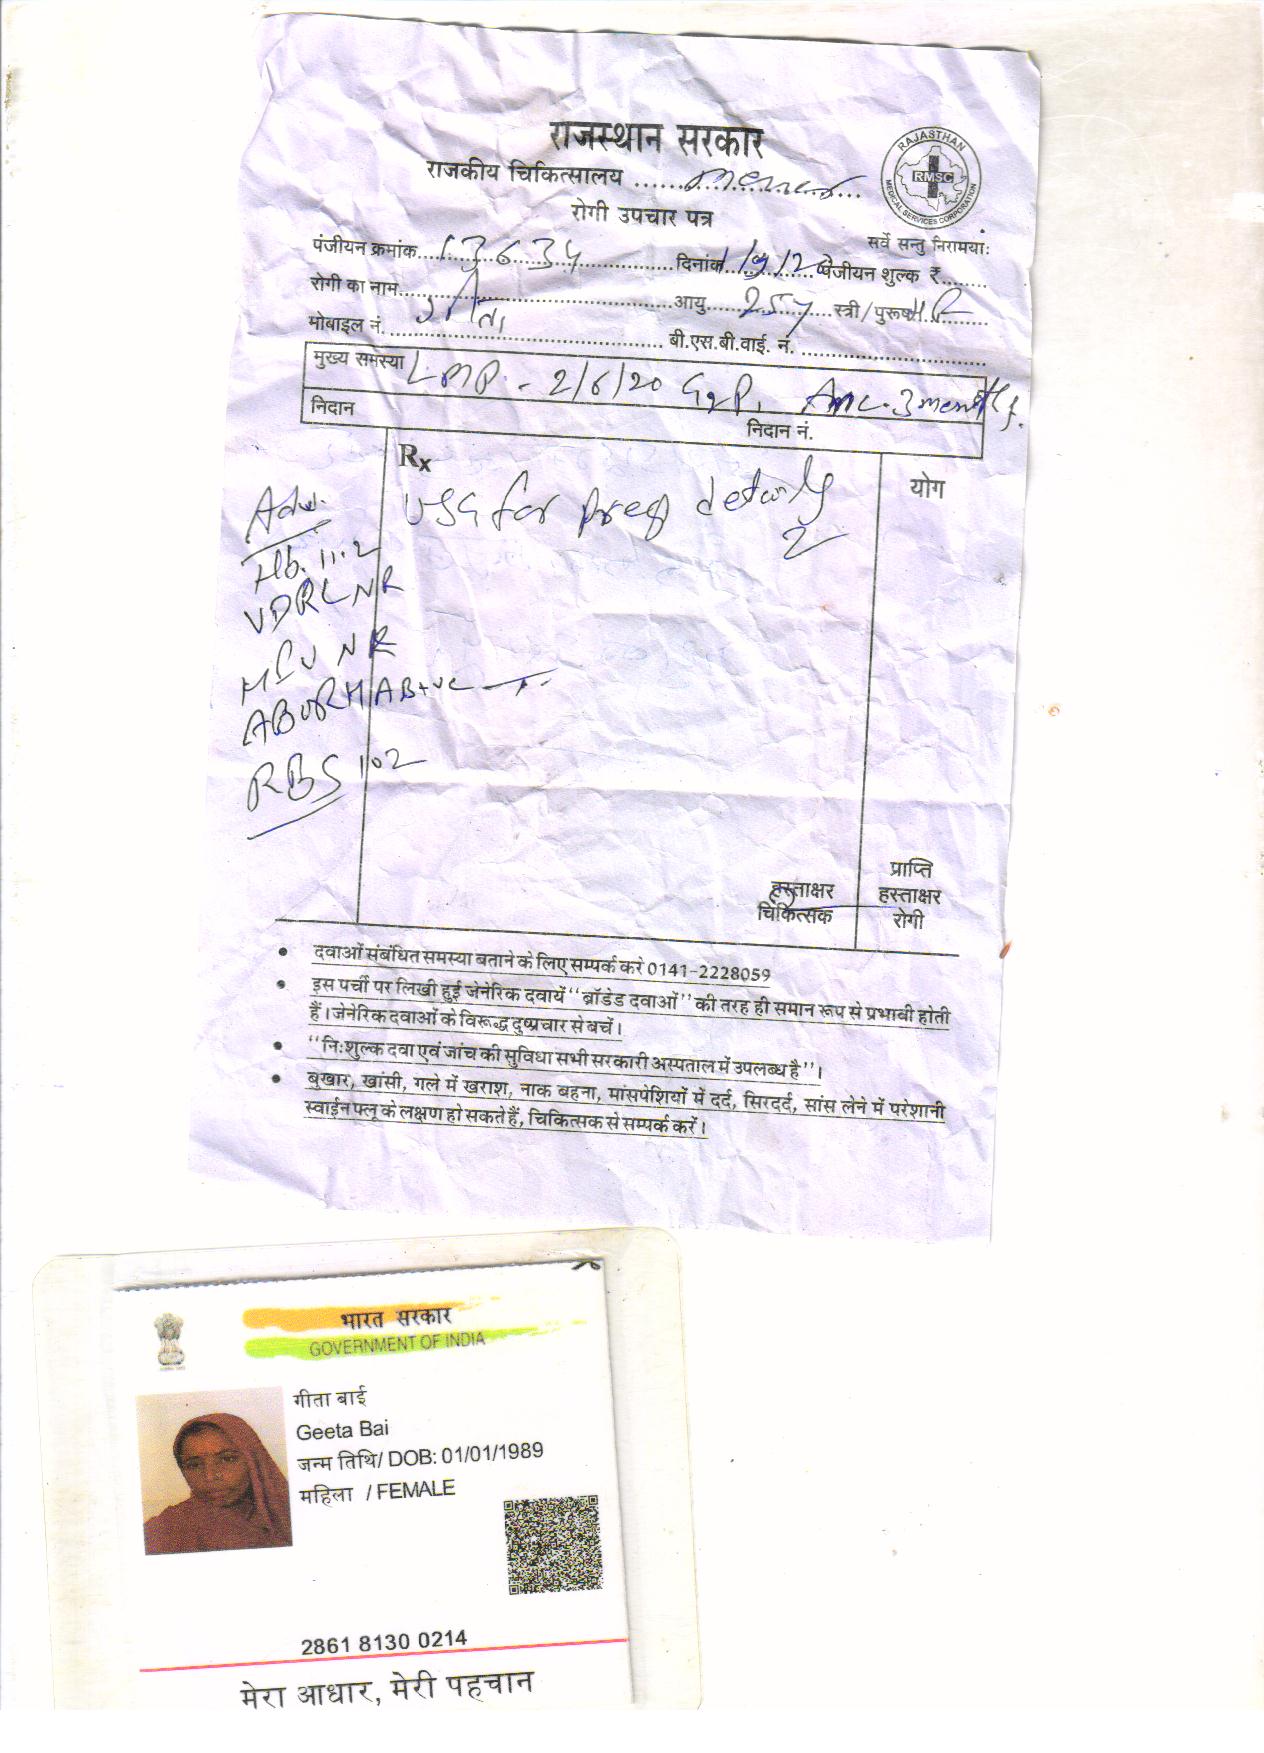 राजस्थान सरकार
राजकीय चिकित्सालय
रोगी उपचार पत्र
RAJASTHAN
RMSC
MEDICAL SERVICES CORPORATION
सर्वे सन्तु निरामयाः
पंजीयन क्रमांक 13634 दिनांक पंजीयन शुल्क ₹
रोगी का नाम गीता आयु 25y स्त्री/पुरूष
मोबाइल नं. बी.एस.बी.वाई. नं.
मुख्य समस्या LMP - 2/6/20 G2P1 Anc. 3 month
निदान
निदान नं.
Rx
योग
USG for preg
Adv.
Hb. 11.2
VDRL NR
HIV NR
ABORH AB+ve
RBS 102
हस्ताक्षर
चिकित्सक
प्राप्ति
हस्ताक्षर
रोगी
• दवाओं संबंधित समस्या बताने के लिए सम्पर्क करे 0141-2228059
• इस पर्ची पर लिखी हुई जेनेरिक दवायें "ब्रॉडेड दवाओं" की तरह ही समान रूप से प्रभावी होती
हैं। जेनेरिक दवाओं के विरूद्ध दुष्प्रचार से बचें।
• "निःशुल्क दवा एवं जांच की सुविधा सभी सरकारी अस्पताल में उपलब्ध है"।
• बुखार, खांसी, गले में खराश, नाक बहना, मांसपेशियों में दर्द, सिरदर्द, सांस लेने में परेशानी
स्वाईन फ्लू के लक्षण हो सकते हैं, चिकित्सक से सम्पर्क करें।
भारत सरकार
GOVERNMENT OF INDIA
गीता बाई
Geeta Bai
जन्म तिथि/ DOB: 01/01/1989
महिला / FEMALE
2861 8130 0214
मेरा आधार, मेरी पहचान